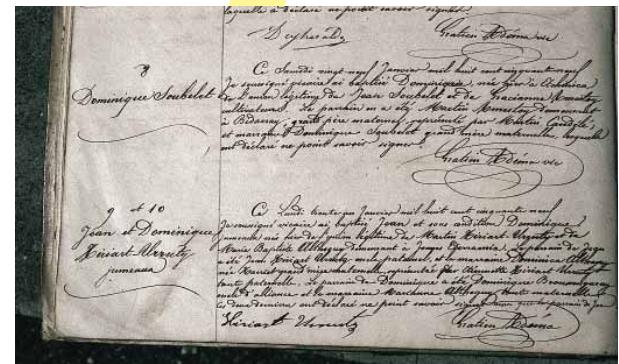 laquelle a déclaré ne pouvoir savoir signer.
Gratien Adéma vic
8
Dominique Soubelet
Ce Samedi vingt-neuf Janvier mil huit cent cinquante neuf
Je soussigné vicaire ai baptisé Dominique, née hier à
de l'union légitime de Jean Soubelet et de Gracianne
cultivateurs. Le parrain en a été Martin demeurant
à Bidarray, père maternel, représenté par Martin
et marraine Dominique Soubelet grand'mère maternelle, laquelle
ont déclaré ne point savoir signer.
Gratien Adéma vic
9 et 10
Jean et Dominique
Hiriart-Urruty
jumeaux
Ce Lundi trente un Janvier mil huit cent cinquante neuf
Je soussigné vicaire ai baptisé Jean et sous condition Dominique
jumeaux nés hier de l'union légitime de Martin Hiriart Urruty et de
Marie Baptiste demeurant à Le parrain de Jean
a été Jean Hiriart Urruty oncle paternel, et la marraine Dominica
née grand'mère maternelle représentée par Hiriart Urruty
tante paternelle. Le parrain de Dominique a été Dominique
oncle d'alliance et la marraine tante maternelle
ont déclaré ne point savoir signer par le parrain de Jean
Hiriart Urruty
Gratien Adéma